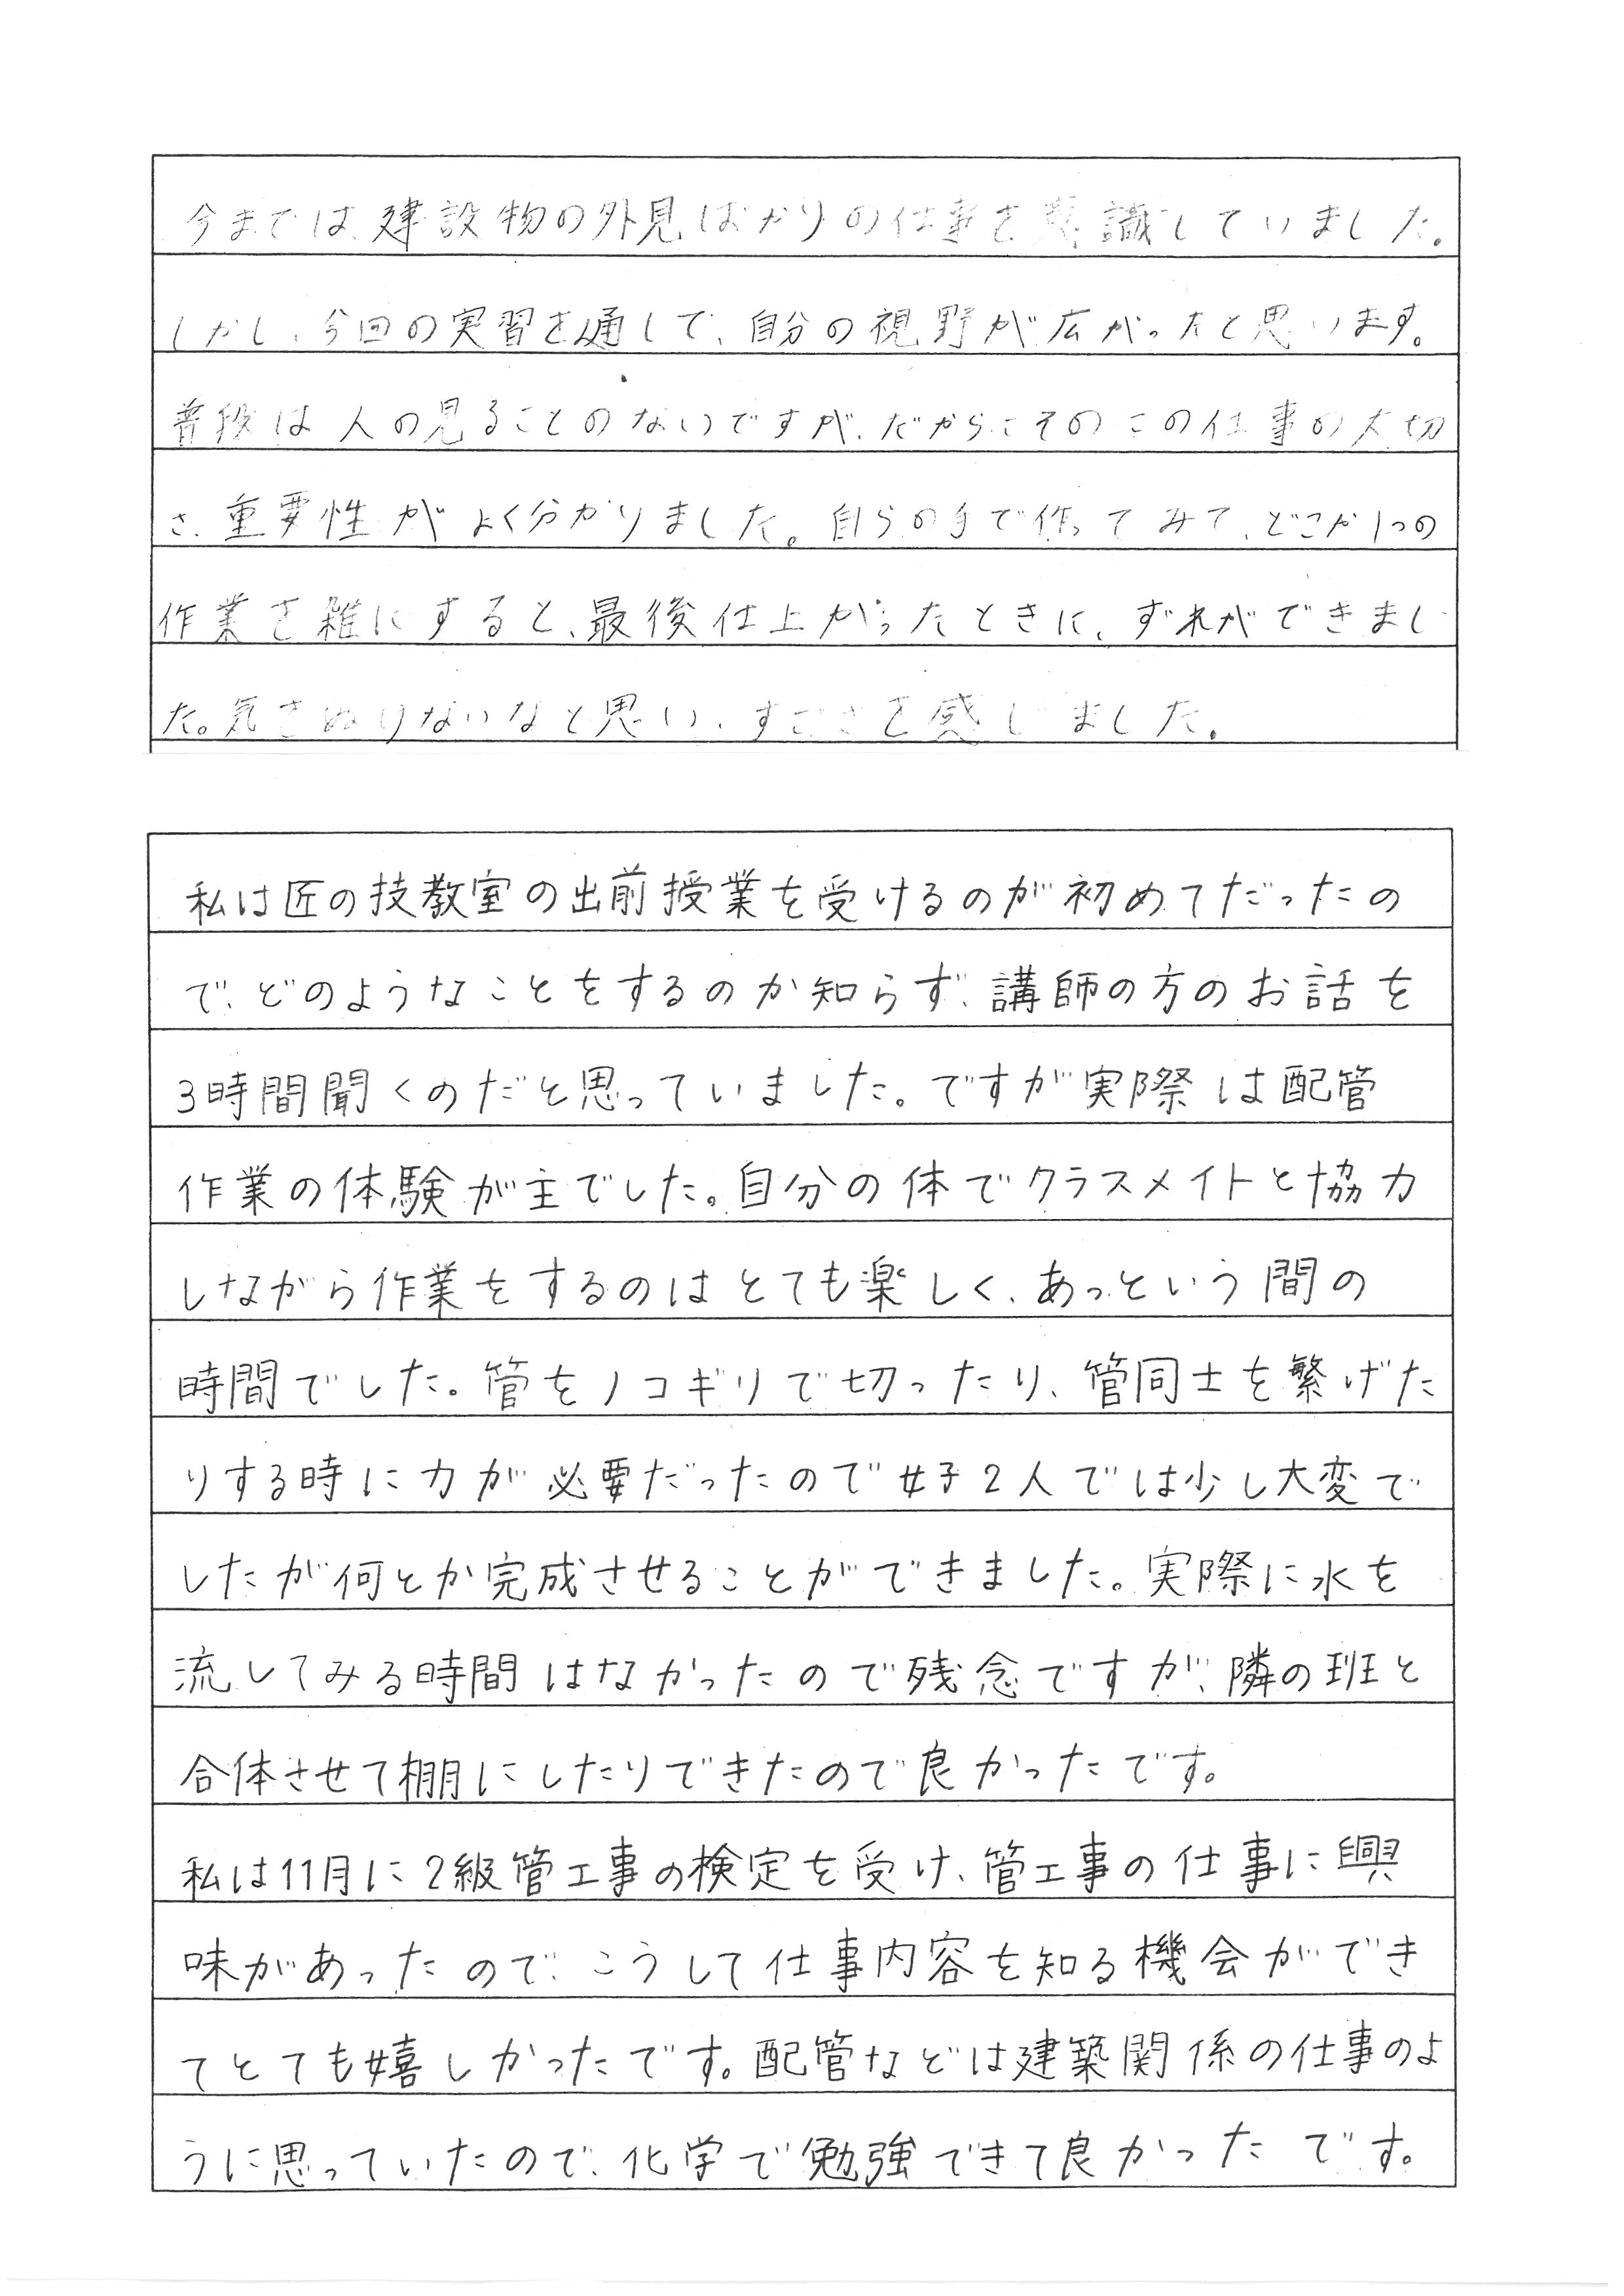 今までは、建設物の外見ばかりの仕事を意識していました。
しかし、今回の実習を通して、自分の視野が広がったと思います。
普段は人の見ることのないですが、だからこそのこの仕事の大切
さ、重要性がよく分かりました。自らの手で作ってみて、どこか1つの
作業を雑にすると、最後仕上がったときに、ずれができまし
た。気をぬけないなと思い、すごさを感じました。
私は匠の技教室の出前授業を受けるのが初めてだったの
で、どのようなことをするのか知らず、講師の方のお話を
3時間聞くのだと思っていました。ですが実際は配管
作業の体験が主でした。自分の体でクラスメイトと協力
しながら作業をするのはとても楽しく、あっという間の
時間でした。管をノコギリで切ったり、管同士を繋げた
りする時に力が必要だったので女子2人では少し大変で
したが何とか完成させることができました。実際に水を
流してみる時間はなかったので残念ですが、隣の班と
合体させて棚にしたりできたので良かったです。
私は11月に2級管工事の検定を受け、管工事の仕事に興
味があったので、こうして仕事内容を知る機会ができ
てとても嬉しかったです。配管などは建築関係の仕事のよ
うに思っていたので、化学で勉強できて良かったです。